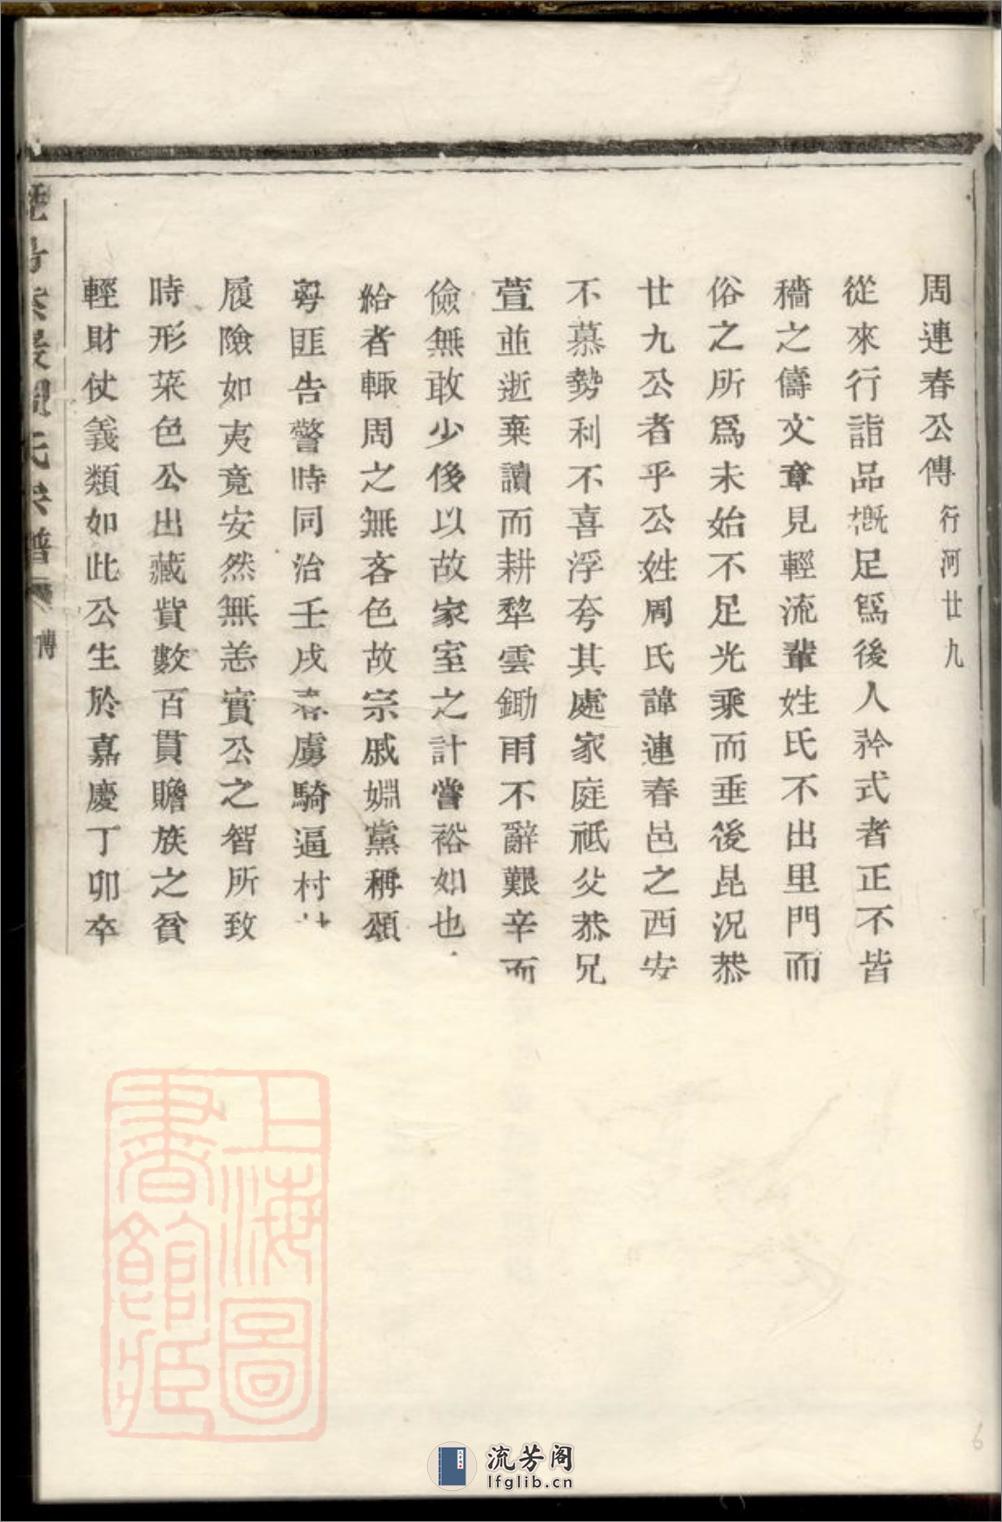 周連春公傳 行河廿九
從來行詣品概足爲後人矜式者正不皆
穡之儔文章見輕流輩姓氏不出里門而
俗之所爲未始不足光乘而垂後昆況恭
廿九公者乎公姓周氏諱連春邑之西安
不慕勢利不喜浮夸其處家庭祗父恭兄
萱並逝棄讀而耕犂雲鋤雨不辭艱辛而
儉無敢少侈以故家室之計嘗裕如也
給者輙周之無吝色故宗戚婣黨稱頌
匪告警時同治壬戌春虜騎逼村
履險如夷竟安然無恙實公之智所致
時形菜色公出藏貲數百貫贍族之貧
輕財仗義類如此公生於嘉慶丁卯卒
氏宗譜 傳
上海圖書館藏
流芳阁
lfglib.cn
6